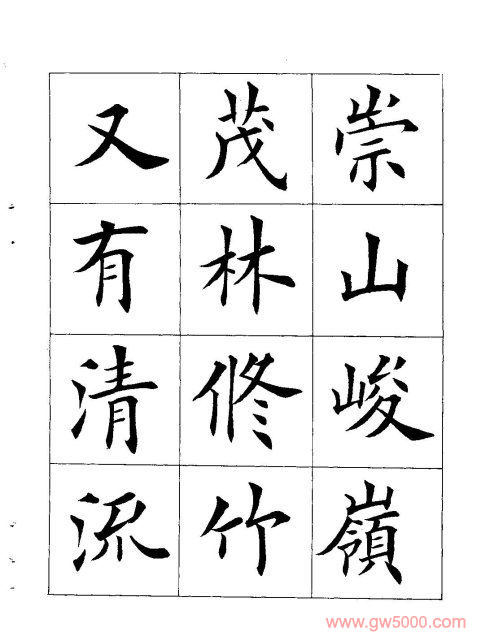 崇山峻嶺
茂林修竹
又有清流
www.gw5000.com